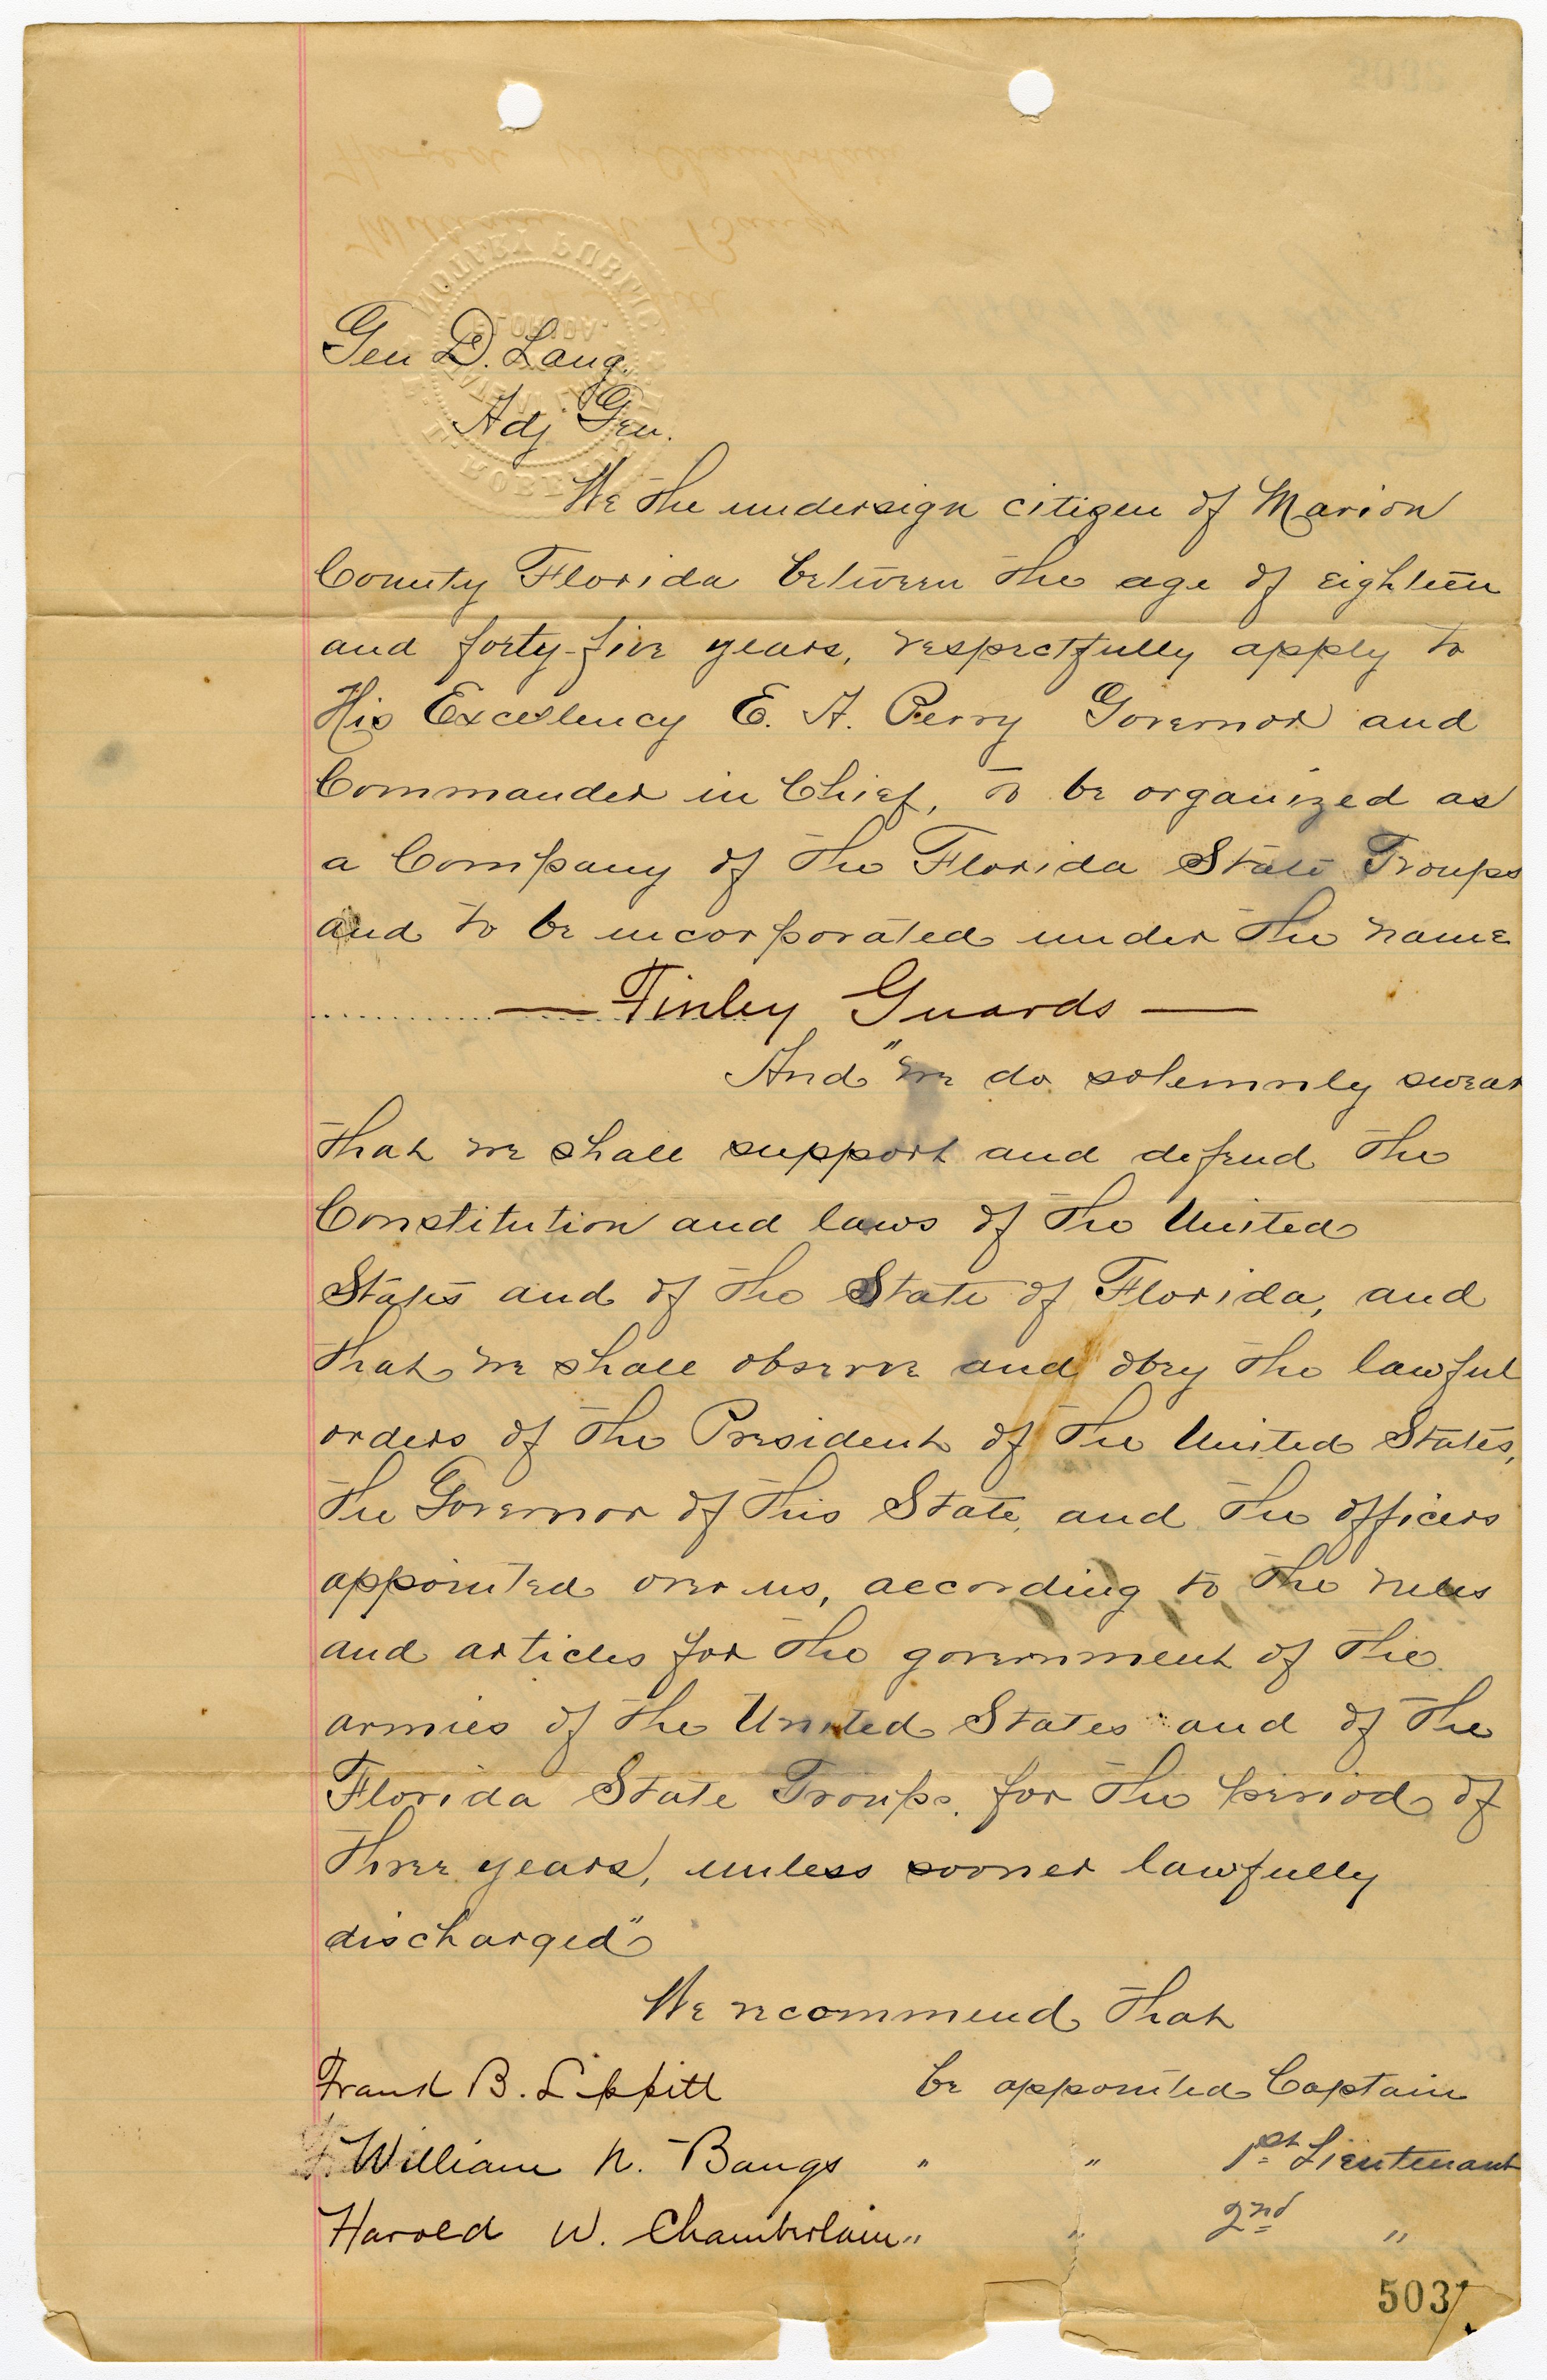 Gen D. Lang.
Adj Gen.
We the undersign citizen of Marion
County Florida between the age of eighteen
and forty-five years, respectfully apply to
His Excellency E. A. Perry Governor and
Commander in Chief, to be organized as
a Company of the Florida State Troups
and to be incorporated under the name
— Finley Guards —
And "we do solemnly swear
that we shall support and defend the
Constitution and laws of the United
States and of the State of Florida, and
that we shall observe and obey the lawful
orders of the President of the United States,
the Governor of this State, and the officers
appointed over us, according to the rules
and articles for the government of the
armies of the United States and of the
Florida State Troups, for the period of
three years, unless sooner lawfully
discharged"
We recommend that
Frank B. Lippitt be appointed Captain
William N. Bangs " " 1st Lieutenant
Harold W. Chamberlain " " 2nd "
503
NOTARY PUBLIC
FLORIDA.